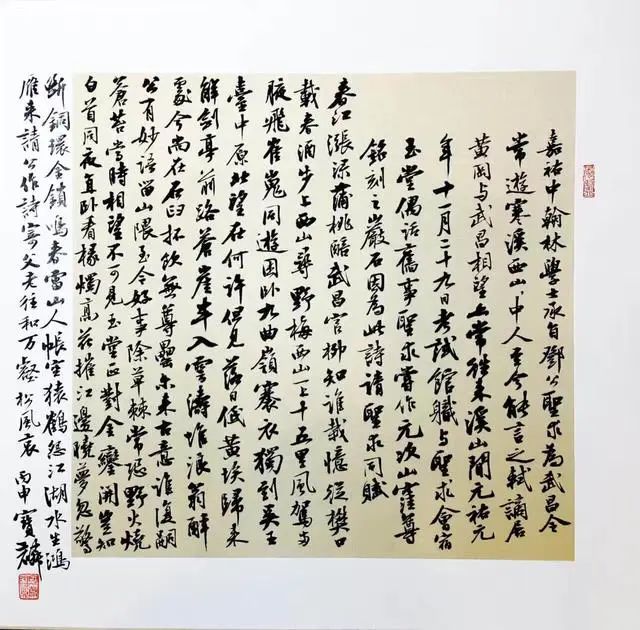 嘉祐中翰林學士承旨鄧公聖求為武昌令
常遊寒溪西山山中人至今能言之軾謫居
黃岡与武昌相望上常往来溪山間元祐元
年十一月二十九日考試館職与聖求會宿
玉堂偶话舊事聖求嘗作元次山窪尊
銘刻之巖石因為此詩請聖求同賦
春江漲渌蒲桃醅武昌官柳知誰栽憶從樊口
載春酒步上西山尋野梅西山一上十五里風駕兩
腋飛崔嵬同遊困卧九曲嶺褰衣獨到吳王
臺中原北望在何許但見落日低黃埃歸来
解剑亭前路蒼崖半入雲濤堆浪翁醉
處今尚在石臼抔飲無尊罍尔来古意誰復嗣
公有妙語留山隈至今好事除草棘常恐野火燒
蒼苔當時相望不可見玉堂正對金鑾開豈知
白首同夜直卧看椽燭高花摧江邊曉夢忽驚
斷銅環金鎖鳴春雷山人帳空猿鶴怨江湖水生鴻
雁来請公作詩寄父老往和万壑松風哀 丙申 寶麟